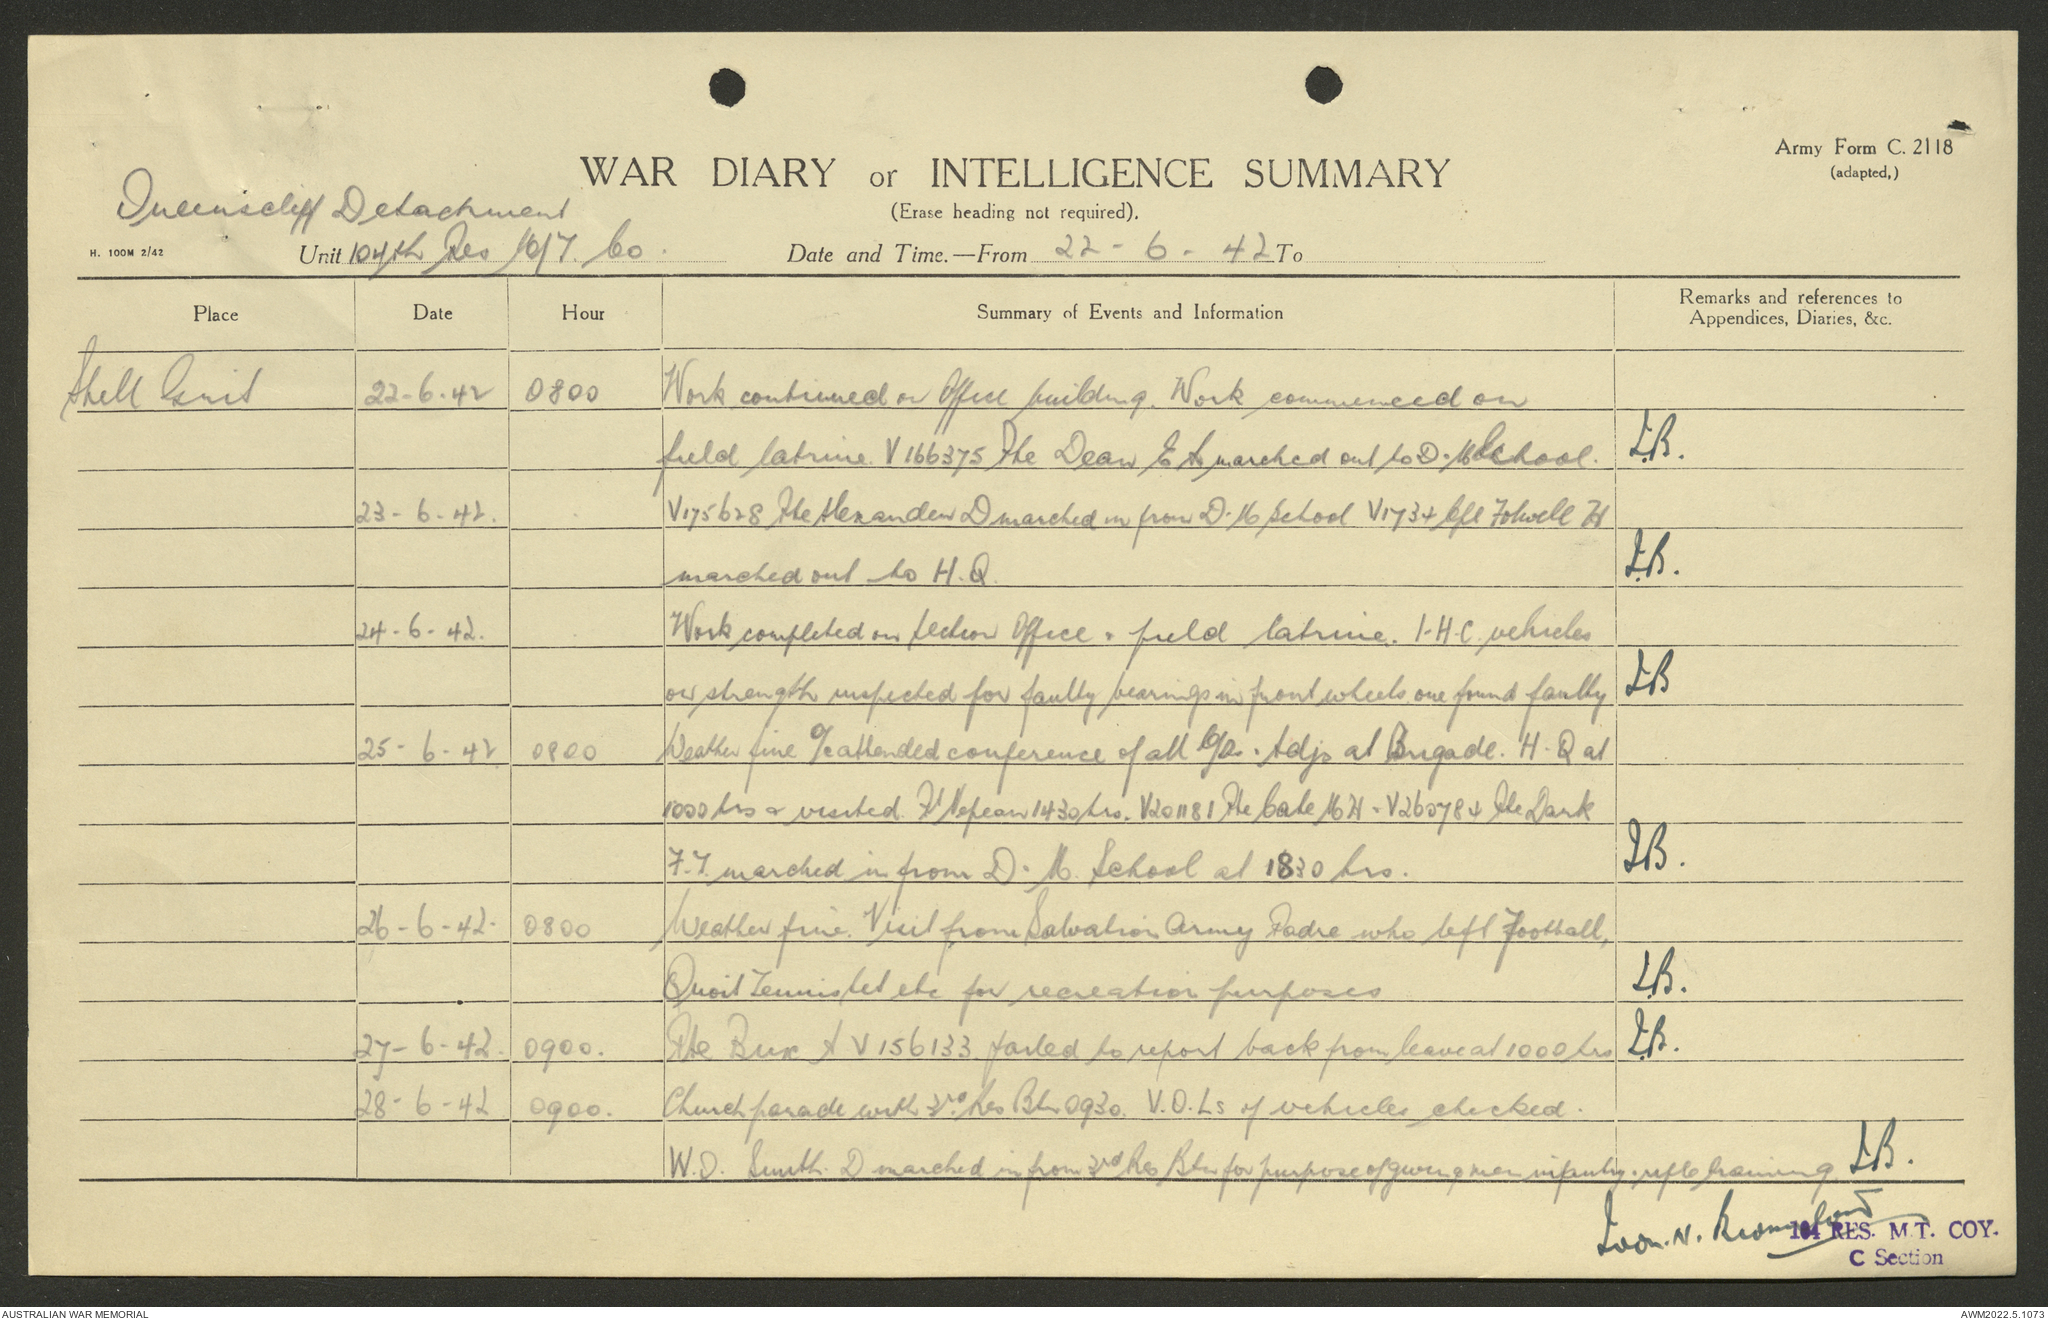 Army Form C. 2118
(adapted,)
WAR DIARY or INTELLIGENCE SUMMARY
(Erase heading not required).
Queenscliff Detachment
H. 100M 2/42
Unit 104th Res M/T. Co.
Date and Time.—From 22-6-42 To
Place Date Hour Summary of Events and Information Remarks and references to Appendices, Diaries, &c.
Shell 22-6-42 0800 Work continued on Office building. Work commenced on
field latrine. V166375 Pte Dean E A marched out to D.M School. I.B.
23-6-42. V175628 Pte Alexander D marched in from D.M School V1734 Cpl Folwell H
marched out to H.Q. I.B.
24-6-42. Work completed on Section Office & field latrine. I-H-C. vehicles
on strength inspected for faulty bearings in front wheels one found faulty I.B
25-6-42 0800 Weather fine O/C attended conference of all C/Os & Adjs at Brigade. H-Q at
1000 hrs & visited Ft Nepean 1430 hrs. V201181 Pte Cate M H - V260784 Pte Dark
F.T. marched in from D.M. School at 1830 hrs. I.B.
26-6-42. 0800 Weather fine. Visit from Salvation Army Padre who left Football,
Quoit Tennis Set etc for recreation purposes I.B.
27-6-42. 0900. Pte Bux A V156133 failed to report back from leave at 1000 hrs I.B.
28-6-42 0900. Church parade with 3rd Res Btn 0930. V.O.Ls of vehicles checked.
W.O. Smith. D marched in from 3rd Res Btn for purpose of giving men infantry & rifle training. I.B.
104 RES. M.T. COY.
C Section
AUSTRALIAN WAR MEMORIAL
AWM2022.5.1073